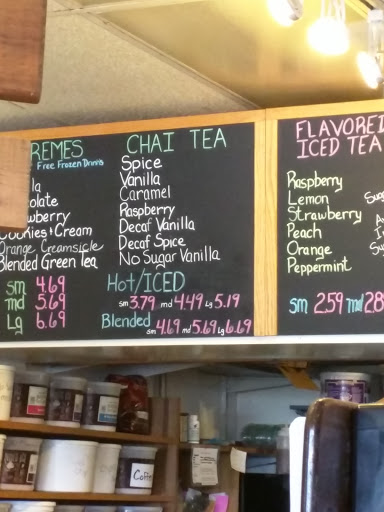 REMES
Free Frozen Drinks
la
olate
wberry
Cookies + Cream
Orange Creamsicle
Blended Green Tea
sm 4.69
md 5.69
Lg 6.69
CHAI TEA
Spice
Vanilla
Caramel
Raspberry
Decaf Vanilla
Decaf Spice
No Sugar Vanilla
Hot/ICED
sm 3.79 md 4.49 Lg 5.19
Blended
sm 4.69 md 5.69 Lg 6.69
FLAVORED
ICED TEA
Raspberry
Lemon
Strawberry
Peach
Orange
Peppermint
sm 2.59 md 2.8
Coffee